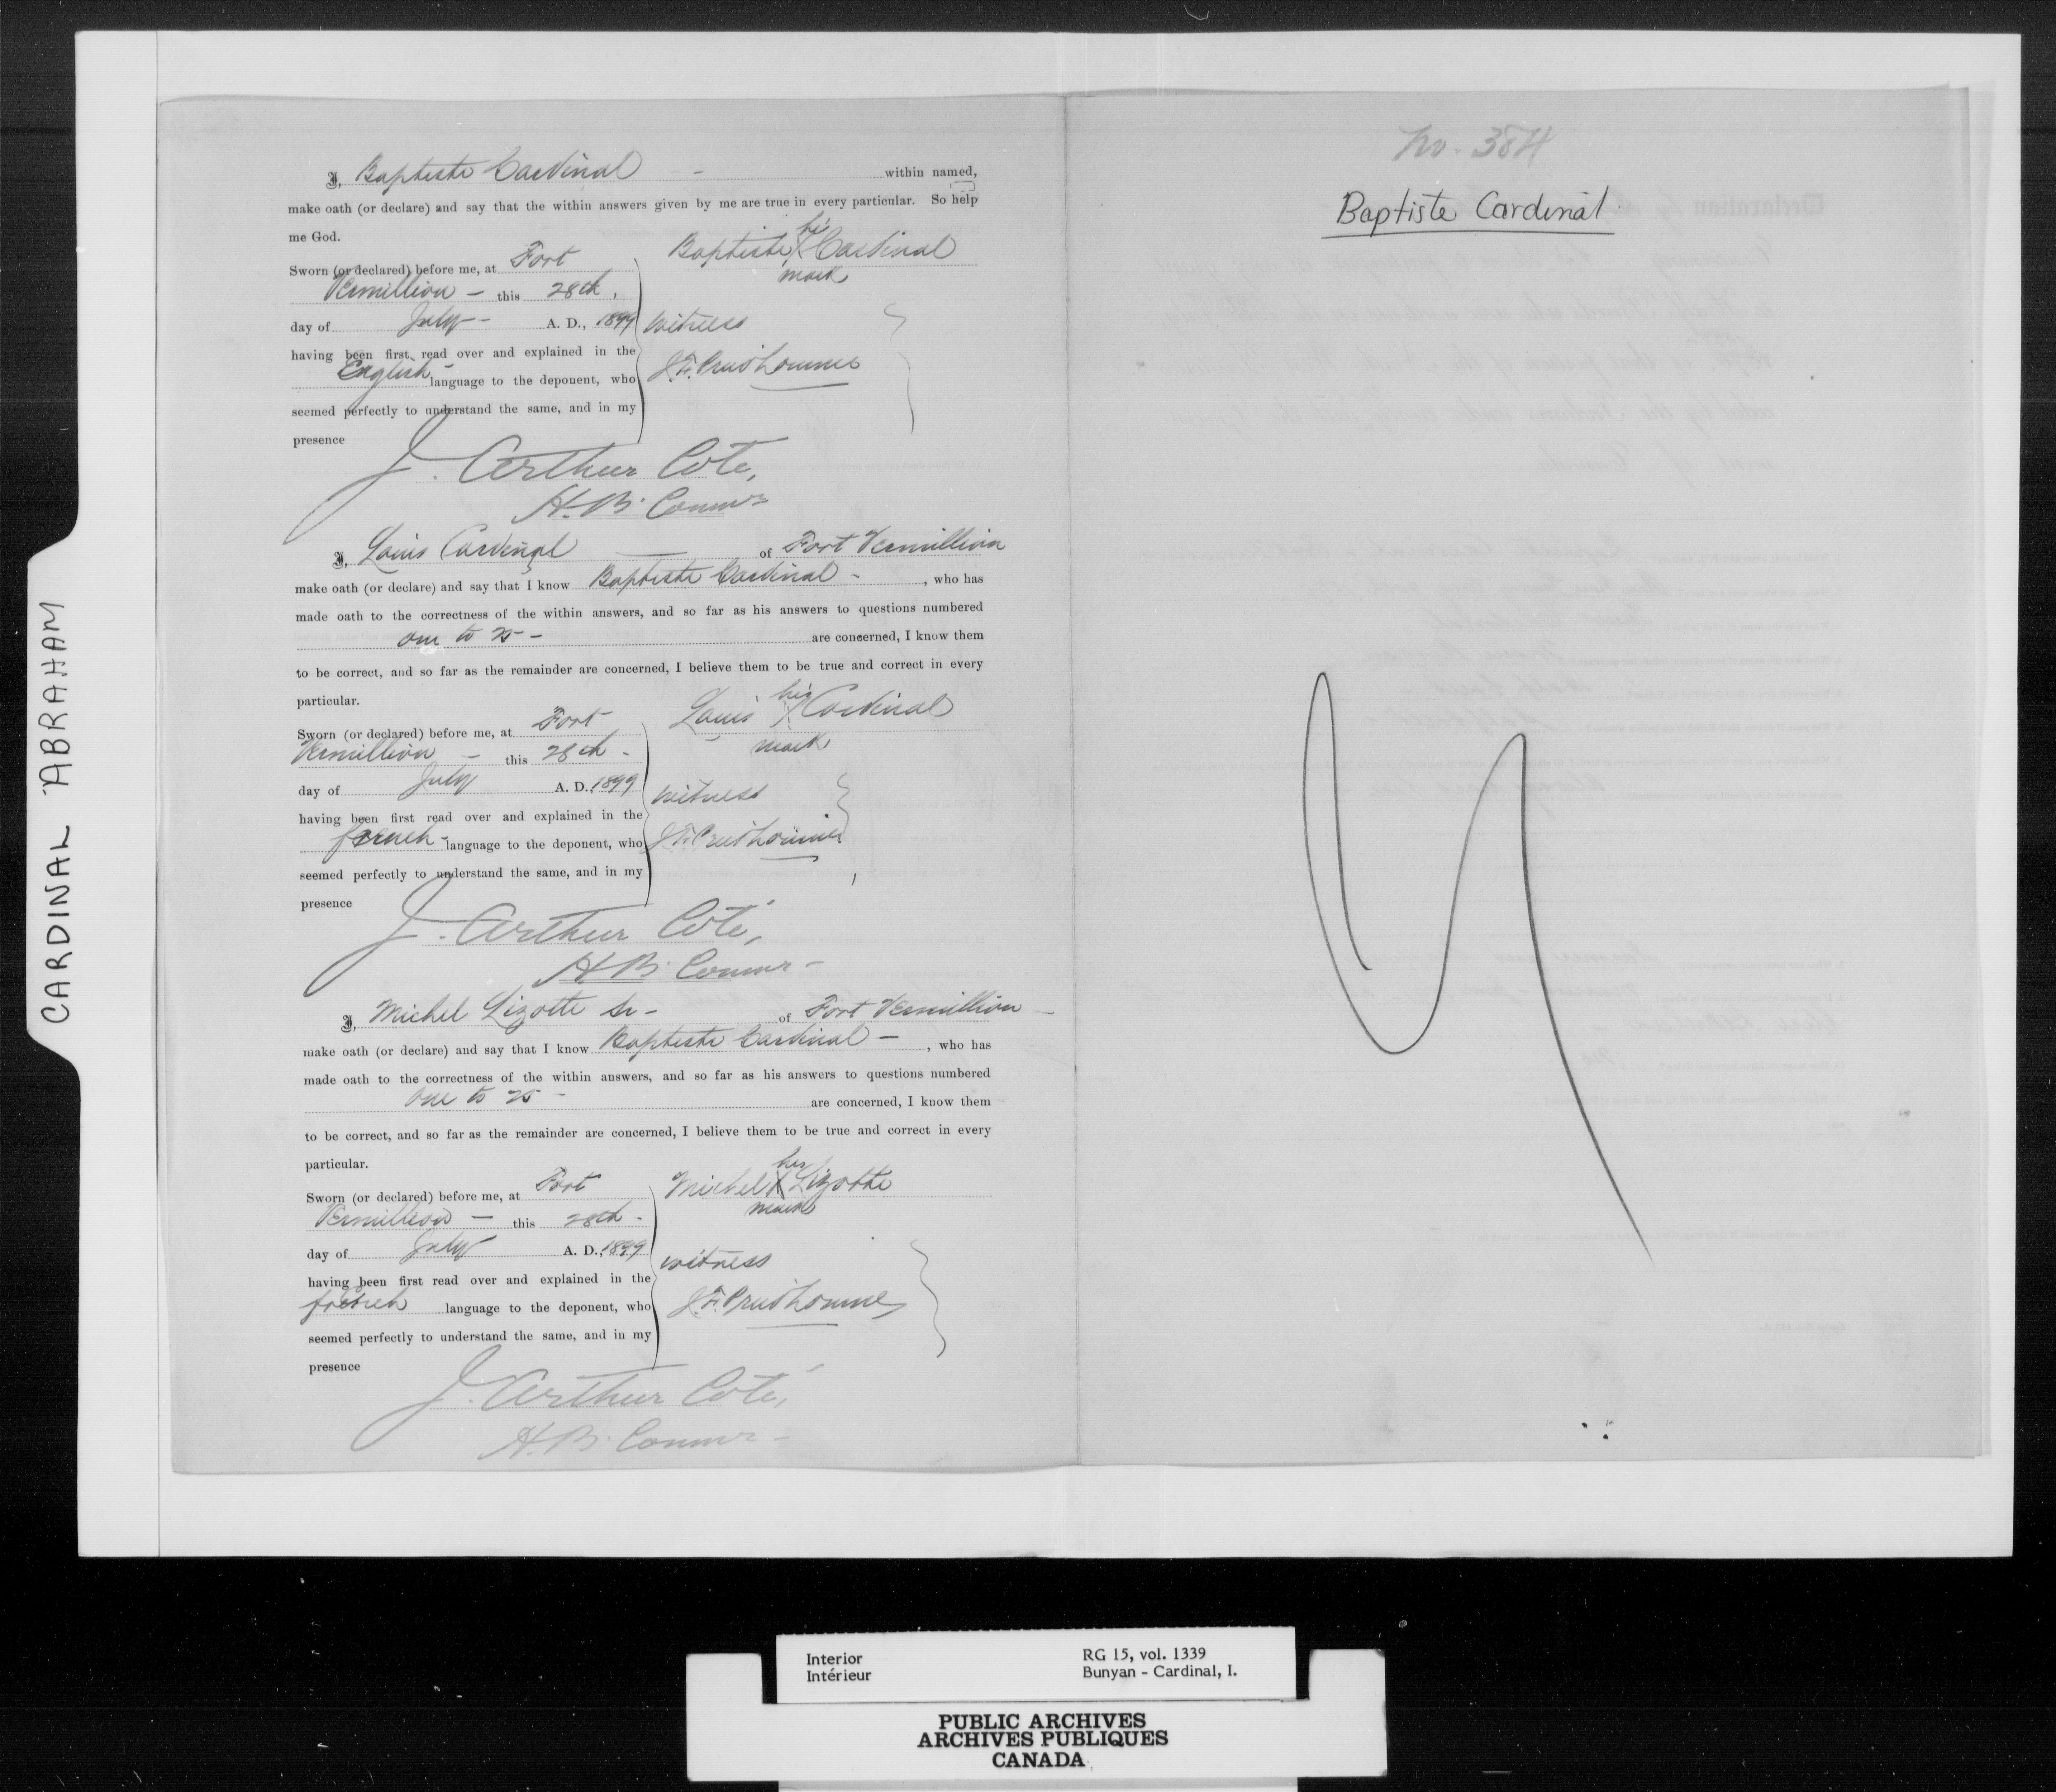 CARDINAL ABRAHAM
I, Baptiste Cardinal - within named,
make oath (or declare) and say that the within answers given by me are true in every particular. So help
me God.
Baptiste his X mark Cardinal
Sworn (or declared) before me, at Fort
Vermillion - this 28th,
day of July - A. D., 1899
witness
having been first read over and explained in the
English - language to the deponent, who
J. F. Prudhomme
seemed perfectly to understand the same, and in my
presence
J. Arthur Coté,
H. B. Commr
I, Louis Cardinal — of Fort Vermillion
make oath (or declare) and say that I know Baptiste Cardinal - , who has
made oath to the correctness of the within answers, and so far as his answers to questions numbered
one to 25 - are concerned, I know them
to be correct, and so far as the remainder are concerned, I believe them to be true and correct in every
particular.
Louis his X mark Cardinal
Sworn (or declared) before me, at Fort
Vermillion - this 28th -
day of July A. D., 1899
witness
having been first read over and explained in the
french - language to the deponent, who
J. F. Prudhomme
seemed perfectly to understand the same, and in my
presence
J. Arthur Coté,
H. B. Commr -
I, Michel Lizotte Sr - of Fort Vermillion -
make oath (or declare) and say that I know Baptiste Cardinal - , who has
made oath to the correctness of the within answers, and so far as his answers to questions numbered
one to 25 - are concerned, I know them
to be correct, and so far as the remainder are concerned, I believe them to be true and correct in every
particular.
Michel his X mark Lizotte
Sworn (or declared) before me, at Fort
Vermillion - this 28th -
day of July A. D., 1899
witness
having been first read over and explained in the
french language to the deponent, who
J. F. Prudhomme
seemed perfectly to understand the same, and in my
presence
J. Arthur Coté,
H. B. Commr -
No. 384
Baptiste Cardinal
Interior
Intérieur
RG 15, vol. 1339
Bunyan - Cardinal, I.
PUBLIC ARCHIVES
ARCHIVES PUBLIQUES
CANADA